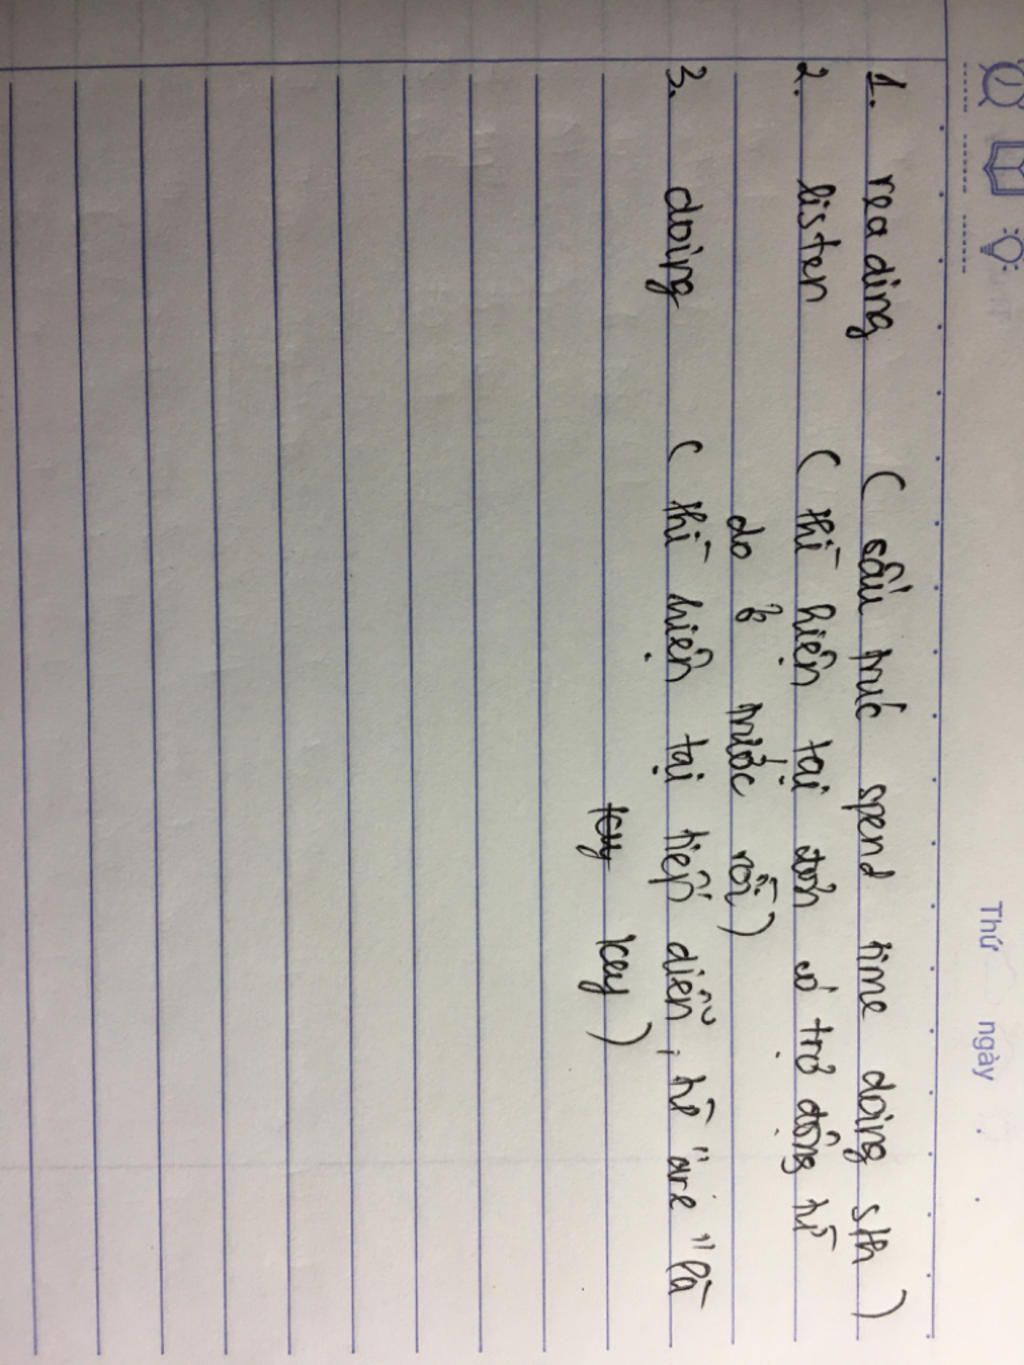 Thứ ngày
1. reading ( cấu trúc spend time doing sth )
2. listen ( thì hiện tại đơn có trợ động từ
do ở trước rồi )
3. doing ( thì hiện tại tiếp diễn, từ "are" là
key )